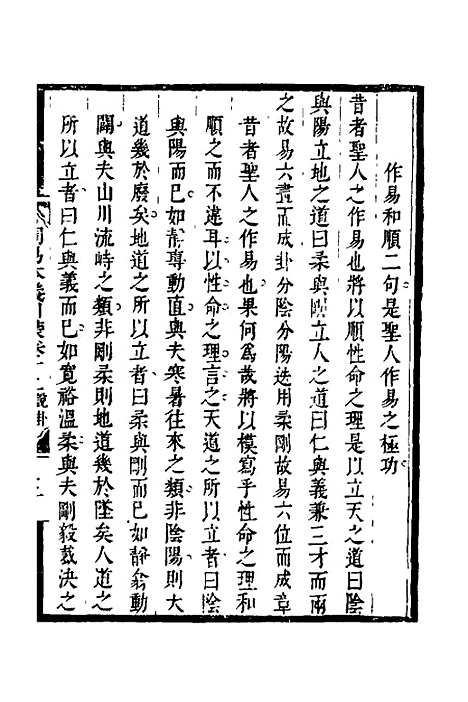 作易和順二句是聖人作易之極功
昔者聖人之作易也將以順性命之理是以立天之道曰陰
與陽立地之道曰柔與剛立人之道曰仁與義兼三才而兩
之故易六畫而成卦分陰分陽迭用柔剛故易六位而成章
昔者聖人之作易也果何為哉將以模寫乎性命之理和
順之而不違耳以性命之理言之天道之所以立者曰陰
與陽而已如靜專動直與夫寒暑往來之類非陰陽則天
道幾於廢矣地道之所以立者曰柔與剛而已如靜翕動
闢與夫山川流峙之類非剛柔則地道幾於墜矣人道之
所以立者曰仁與義而已如寬裕溫柔與夫剛毅裁決之
周易本義引蒙卷十二 說卦